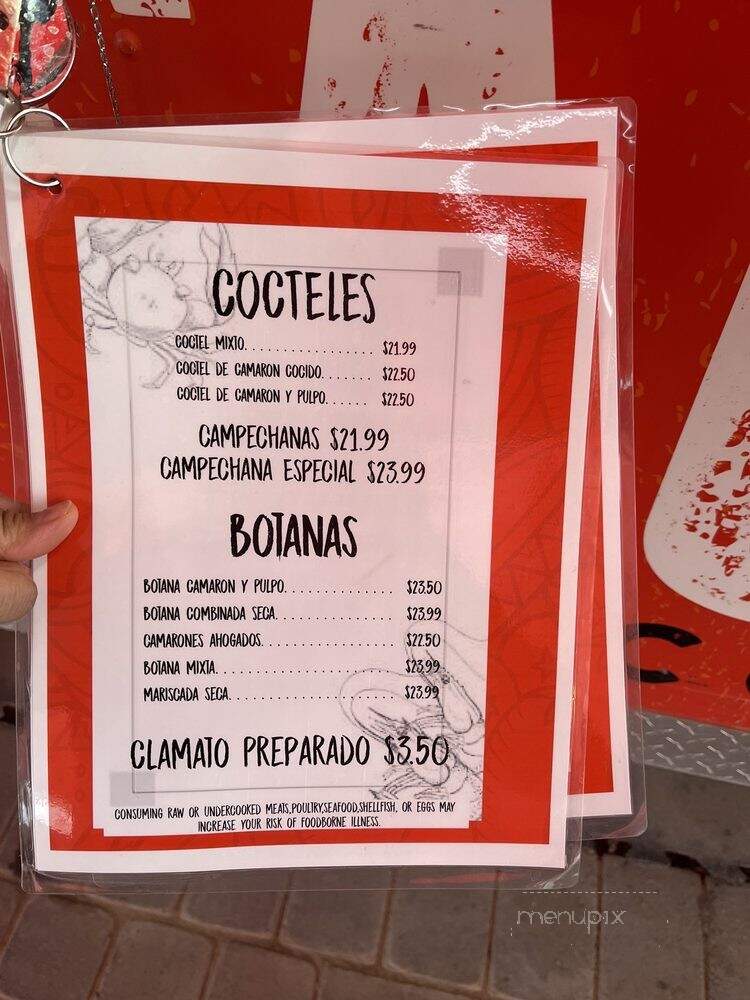 COCTELES
COCTEL MIXTO................. $21.99
COCTEL DE CAMARON COCIDO....... $22.50
COCTEL DE CAMARON Y PULPO...... $22.50
CAMPECHANAS $21.99
CAMPECHANA ESPECIAL $23.99
BOTANAS
BOTANA CAMARON Y PULPO............... $23.50
BOTANA COMBINADA SECA................ $23.99
CAMARONES AHOGADOS.................. $22.50
BOTANA MIXTA........................ $23.99
MARISCADA SECA...................... $23.99
CLAMATO PREPARADO $3.50
CONSUMING RAW OR UNDERCOOKED MEATS,POULTRY,SEAFOOD,SHELLFISH, OR EGGS MAY
INCREASE YOUR RISK OF FOODBORNE ILLNESS.
menupix